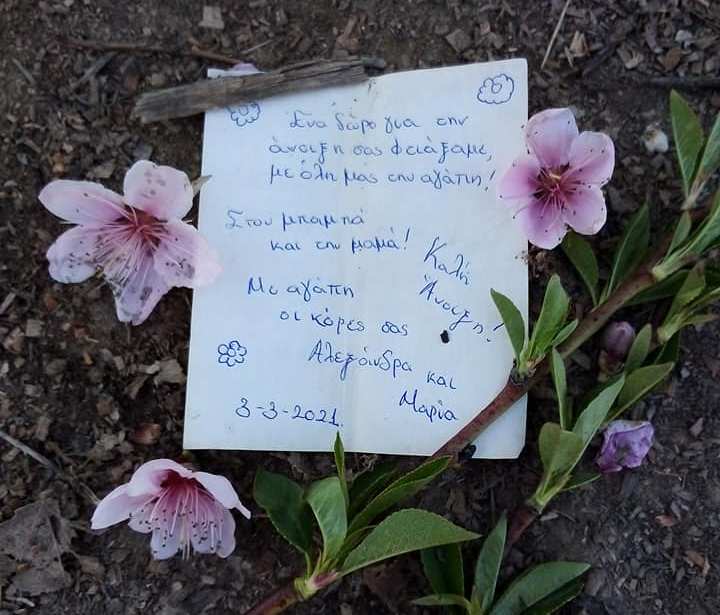 Ένα δώρο για την
άνοιξη σας φτειάξαμε,
με όλη μας την αγάπη!
Στον μπαμπά
και την μαμά!
Καλή
Άνοιξη!
Με αγάπη
οι κόρες σας
Αλεξάνδρα και
Μαρία
3-3-2021.